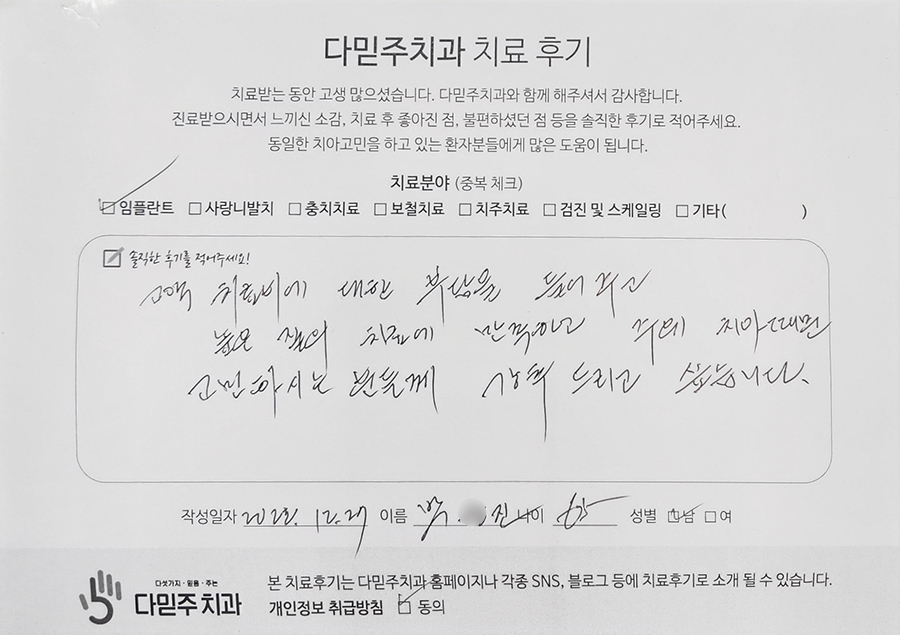 다믿주치과 치료 후기
치료받는 동안 고생 많으셨습니다. 다믿주치과와 함께 해주셔서 감사합니다.
진료받으시면서 느끼신 소감, 치료 후 좋아진 점, 불편하셨던 점 등을 솔직한 후기로 적어주세요.
동일한 치아고민을 하고 있는 환자분들에게 많은 도움이 됩니다.
치료분야 (중복 체크)
임플란트 사랑니발치 충치치료 보철치료 치주치료 검진 및 스케일링 기타( )
솔직한 후기를 적어주세요!
고액 치료비에 대한 부담을 들어주고
높은 질의 치료에 만족하고 주위 치아때문
고민하시는 분들께 강추 드리고 싶습니다.
작성일자 12.27 이름 박 진 나이 65 성별 남 여
다섯가지·믿음·주는
다믿주치과
본 치료후기는 다믿주치과 홈페이지나 각종 SNS, 블로그 등에 치료후기로 소개 될 수 있습니다.
개인정보 취급방침 동의